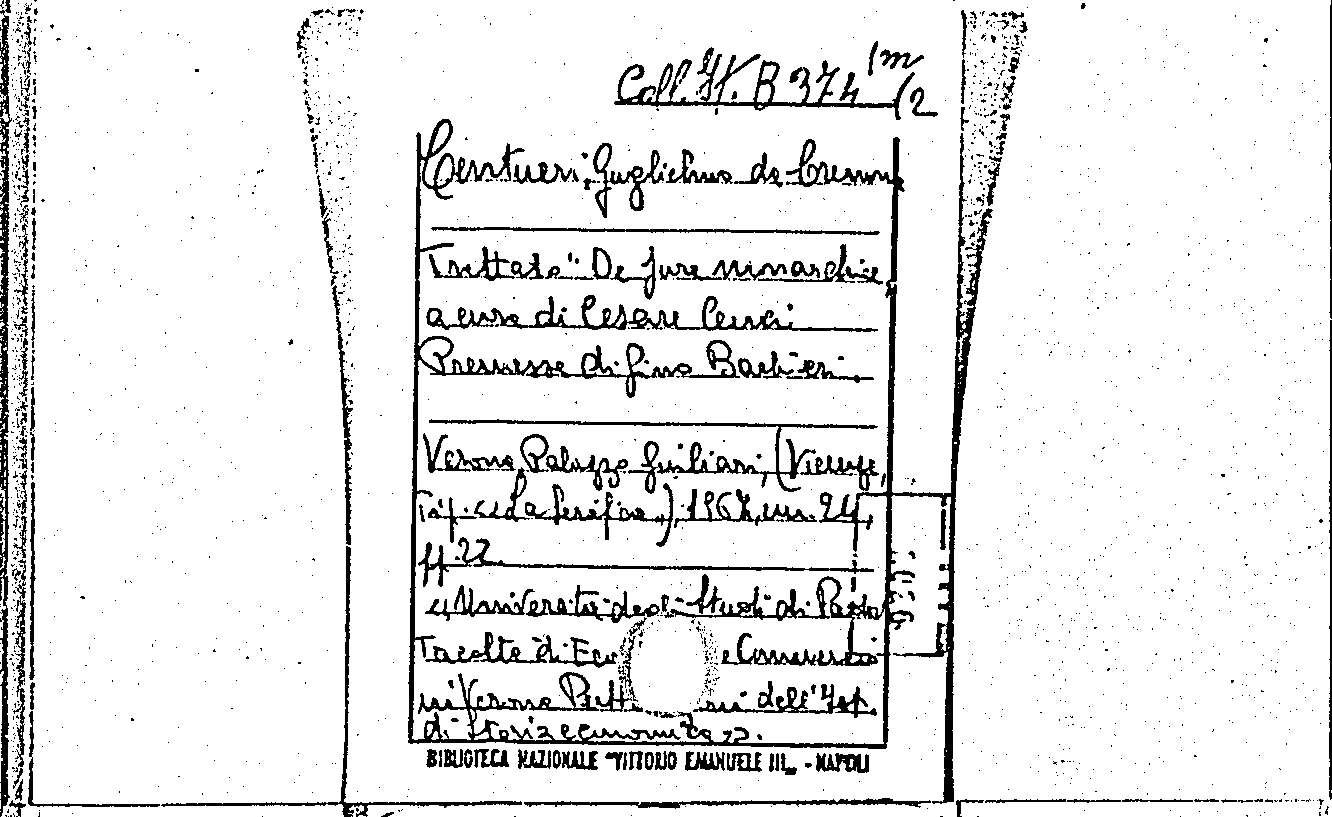 Coll. It. B 374 (m
(2
Centueri, Guglielmo da Cremona
Trattato "De jure monarchiae
a cura di Cesare Cenci
Premessa di Gino Barbieri.
Verona, Palazzo Giuliari, (Vicenza,
Tip. «La Serafica»), 1967, cm. 24,
pp. 22
«Università degli Studi di Padova
Facoltà di Eco e Commercio
in Verona dell'Ist.
di Storia economica».
BIBLIOTECA NAZIONALE "VITTORIO EMANUELE III„ - NAPOLI